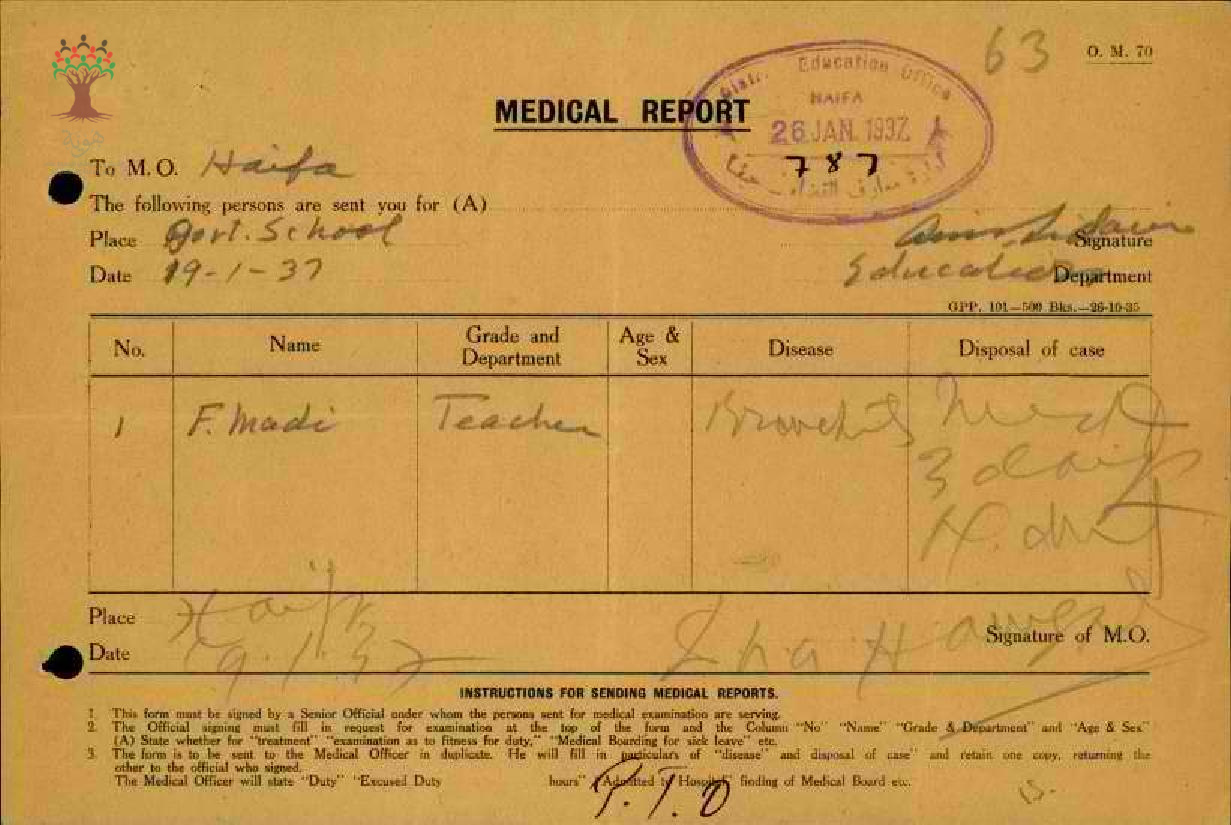 63
O. M. 70
Distr. Education Office
HAIFA
26 JAN. 1937
787
MEDICAL REPORT
To M.O. Haifa
The following persons are sent you for (A)
Place Govt. School
Signature
Date 19-1-37
Education Department
GPP. 101—500 Bks.—26-10-35
No. Name Grade and Department Age & Sex Disease Disposal of case
1 F. Madi Teacher Bronchitis Needs
3 days
Place Haifa
Signature of M.O.
Date 19.1.37
INSTRUCTIONS FOR SENDING MEDICAL REPORTS.
1. This form must be signed by a Senior Official under whom the persons sent for medical examination are serving.
2. The Official signing must fill in request for examination at the top of the form and the Column "No" "Name" "Grade & Department" and "Age & Sex"
(A) State whether for "treatment" "examination as to fitness for duty," "Medical Boarding for sick leave" etc.
3. The form is to be sent to the Medical Officer in duplicate. He will fill in particulars of "disease" and disposal of case" and retain one copy, returning the
other to the official who signed.
The Medical Officer will state "Duty" "Excused Duty hours" "Admitted to Hospital" finding of Medical Board etc.
P.T.O